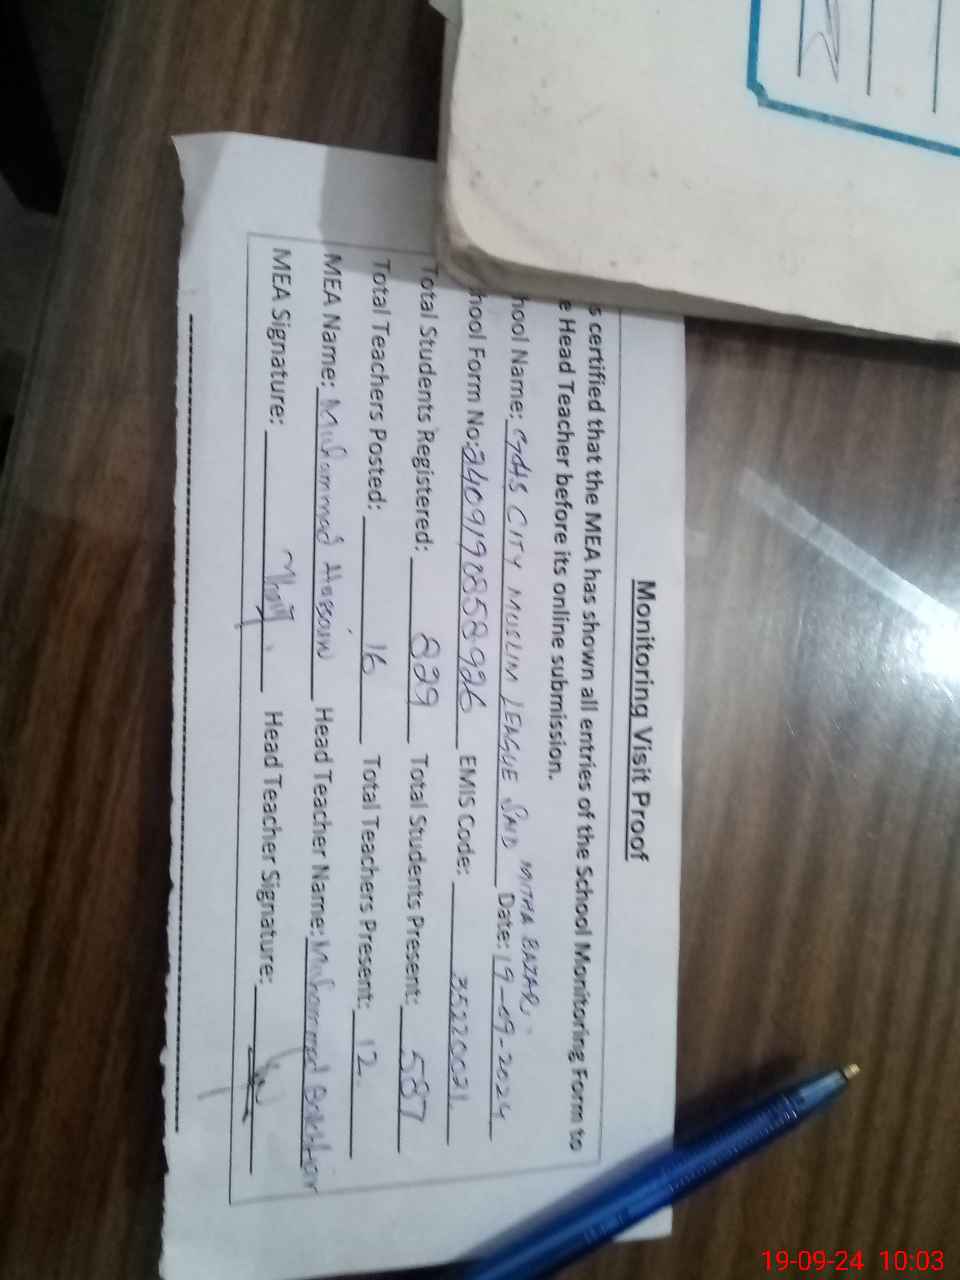 Monitoring Visit Proof
s certified that the MEA has shown all entries of the School Monitoring Form to
e Head Teacher before its online submission.
hool Name: CITY MUSLIM LEAGUE MITHA BAZAR. Date: 19-09-2024
hool Form No: EMIS Code: 35220021.
Total Students Registered: 829 Total Students Present: 587
Total Teachers Posted: 16 Total Teachers Present: 12.
MEA Name: Muhammad Head Teacher Name: Muhammad
MEA Signature: Head Teacher Signature:
19-09-24 10:03